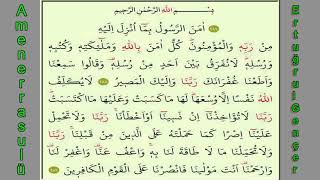 بِسْــــمِ اللهِ الرَّحْمٰنِ الرَّحِيمِ
اٰمَنَ الرَّسُولُ بِمَٓا اُنْزِلَ اِلَيْهِ
مِنْ رَبِّه۪ وَالْمُؤْمِنُونَ كُلٌّ اٰمَنَ بِاللهِ وَمَلٰٓئِكَتِه۪ وَكُتُبِه۪
وَرُسُلِه۪ لَا نُفَرِّقُ بَيْنَ اَحَدٍ مِنْ رُسُلِه۪ وَقَالُوا سَمِعْنَا
وَاَطَعْنَا غُفْرَانَكَ رَبَّنَا وَاِلَيْكَ الْمَص۪يرُ لَا يُكَلِّفُ
اللهُ نَفْسًا اِلَّا وُسْعَهَا لَهَا مَا كَسَبَتْ وَعَلَيْهَا مَا اكْتَسَبَتْ
رَبَّنَا لَا تُؤَاخِذْنَٓا اِنْ نَس۪ينَٓا اَوْ اَخْطَاْنَا رَبَّنَا وَلَا تَحْمِلْ
عَلَيْنَٓا اِصْرًا كَمَا حَمَلْتَهُ عَلَى الَّذ۪ينَ مِنْ قَبْلِنَا رَبَّنَا
وَلَا تُحَمِّلْنَا مَا لَا طَاقَةَ لَنَا بِه۪ وَاعْفُ عَنَّا وَاغْفِرْ لَنَا
وَارْحَمْنَا اَنْتَ مَوْلٰينَا فَانْصُرْنَا عَلَى الْقَوْمِ الْكَافِر۪ينَ
Amenerrasulü
Ertuğrul Gençer